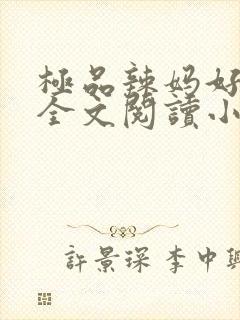 極品辣媽好
全文閱讀小
許景琛 李中興